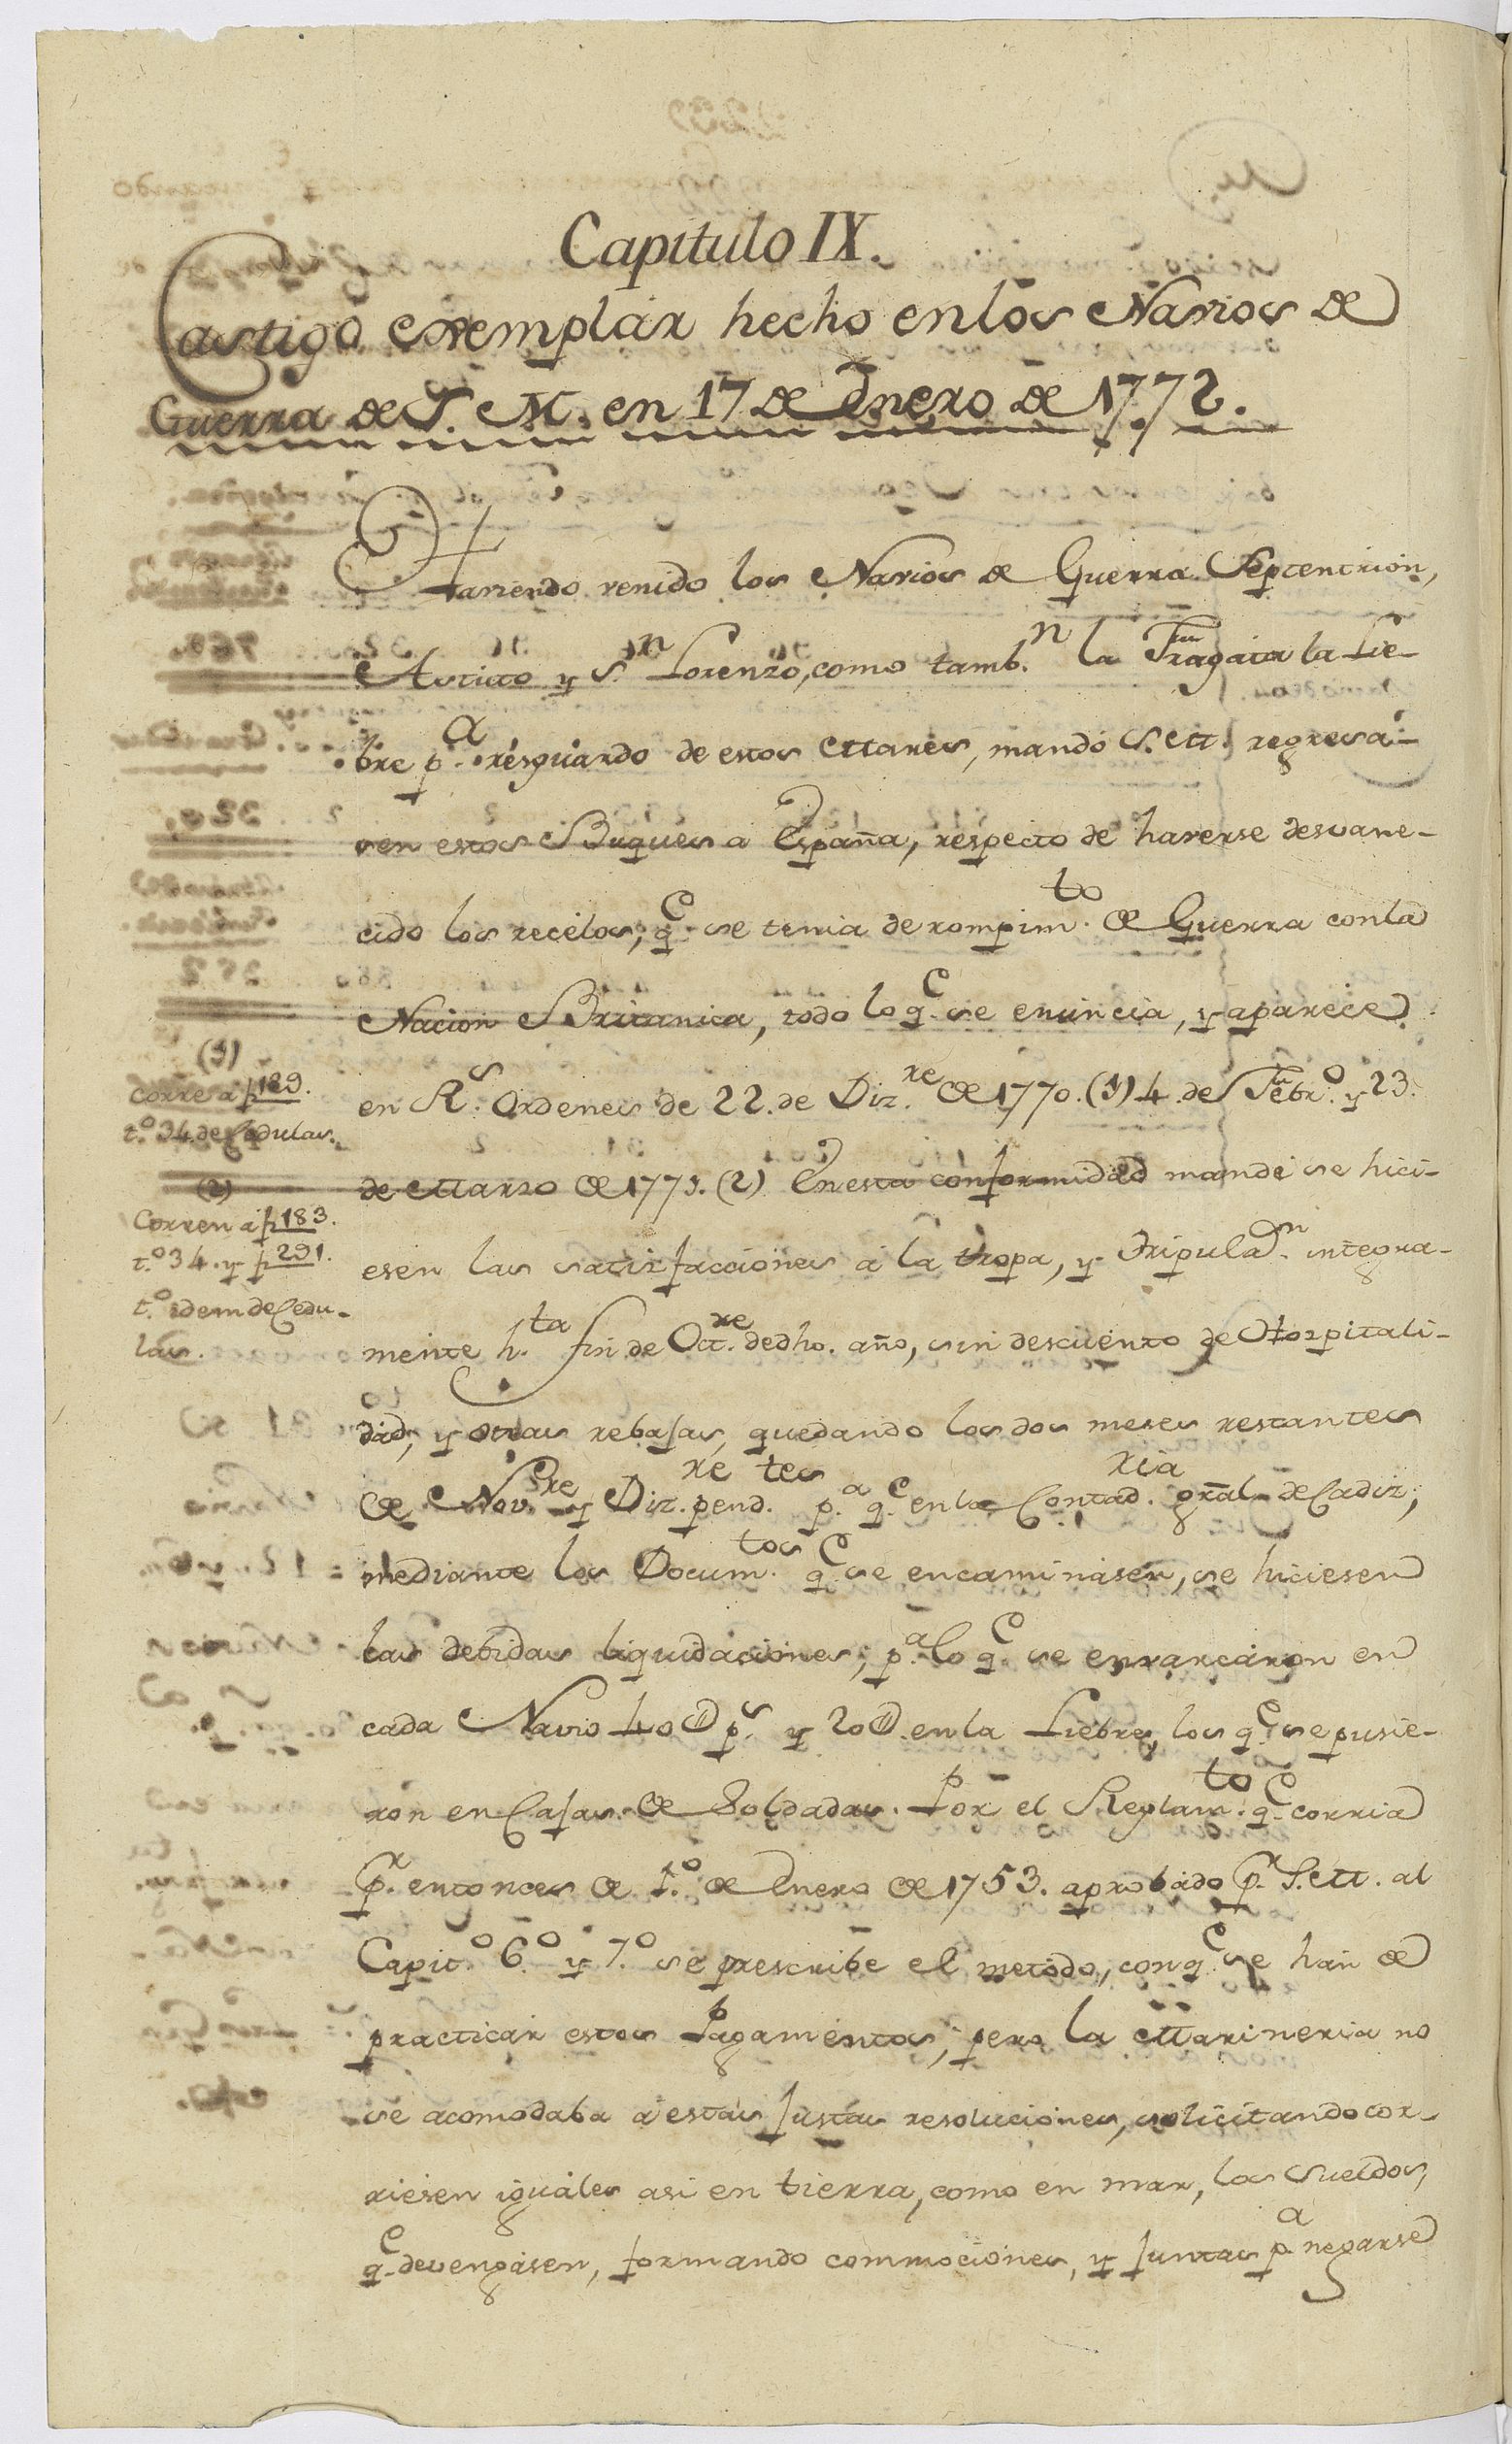 Capitulo IX.
Castigo exemplar hecho en los Navios de
Guerra de S. M. en 17 de Enero de 1772.
Haviendo venido los Navios de Guerra Septentrion,
Astuto y S.n Lorenzo, como tamb.n la Fragata la Lie-
bre p.a resguardo de estos Mares, mandó S. M. regresa-
sen estos Buques a España, respecto de haverse desvane-
cido los recelos, q.e se tenia de rompim.to de Guerra con la
Nacion Britanica, todo lo q.e se enuncia, y aparece
en R.s Ordenes de 22. de Diz.re de 1770. (1) 4. de Febr.o y 23.
(1)
Corre a f 189.
t.o 34. de Cedulas.
de Marzo de 1771. (2) En esta conformidad mandé se hici-
(2)
Corren á f 183.
t.o 34. y f 291.
t.o idem de Cedu-
las.
esen las satisfacciones á la tropa, y Tripula.on integra-
mente h.ta fin de Oct.re de dho. año, sin descuento de Hospitali-
dad, y otras rebajas, quedando los dos meses restantes
de Nov.re y Diz.re pend.tes p.a q.e en la Contad.ria gral de Cadiz,
mediante los Docum.tos q.e se encaminasen, se hiciesen
las debidas liquidaciones, p.a lo q.e se envarcaron en
cada Navio 40 D p.s y 20 D. en la Liebre, los q.e se pusie-
ron en Cajas de Soldadas. Por el Reglam.to q.e corria
p.r entonces de 1.o de Enero de 1753. aprobado p.r S. M. al
Capit.o 6.o y 7.o se prescribe el metodo, con q.e se han de
practicar estos Pagamentos, pero la Marineria no
se acomodaba á estas justas resoluciones, solicitando cor-
riesen iguales asi en tierra, como en mar, los Sueldos,
q.e devengasen, formando commociones, y juntas p.a negarse